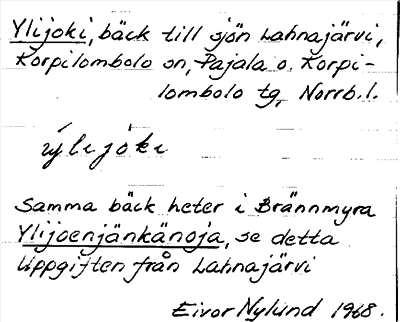 Ylijoki, bäck till sjön Lahnajärvi,
Korpilombolo sn, Pajala o. Korpi-
lombolo tg, Norrb. l.
ýlijoki
Samma bäck heter i Brännmyra
Ylijoenjänkänoja, se detta
Uppgiften från Lahnajärvi
Eivor Nylund 1968.